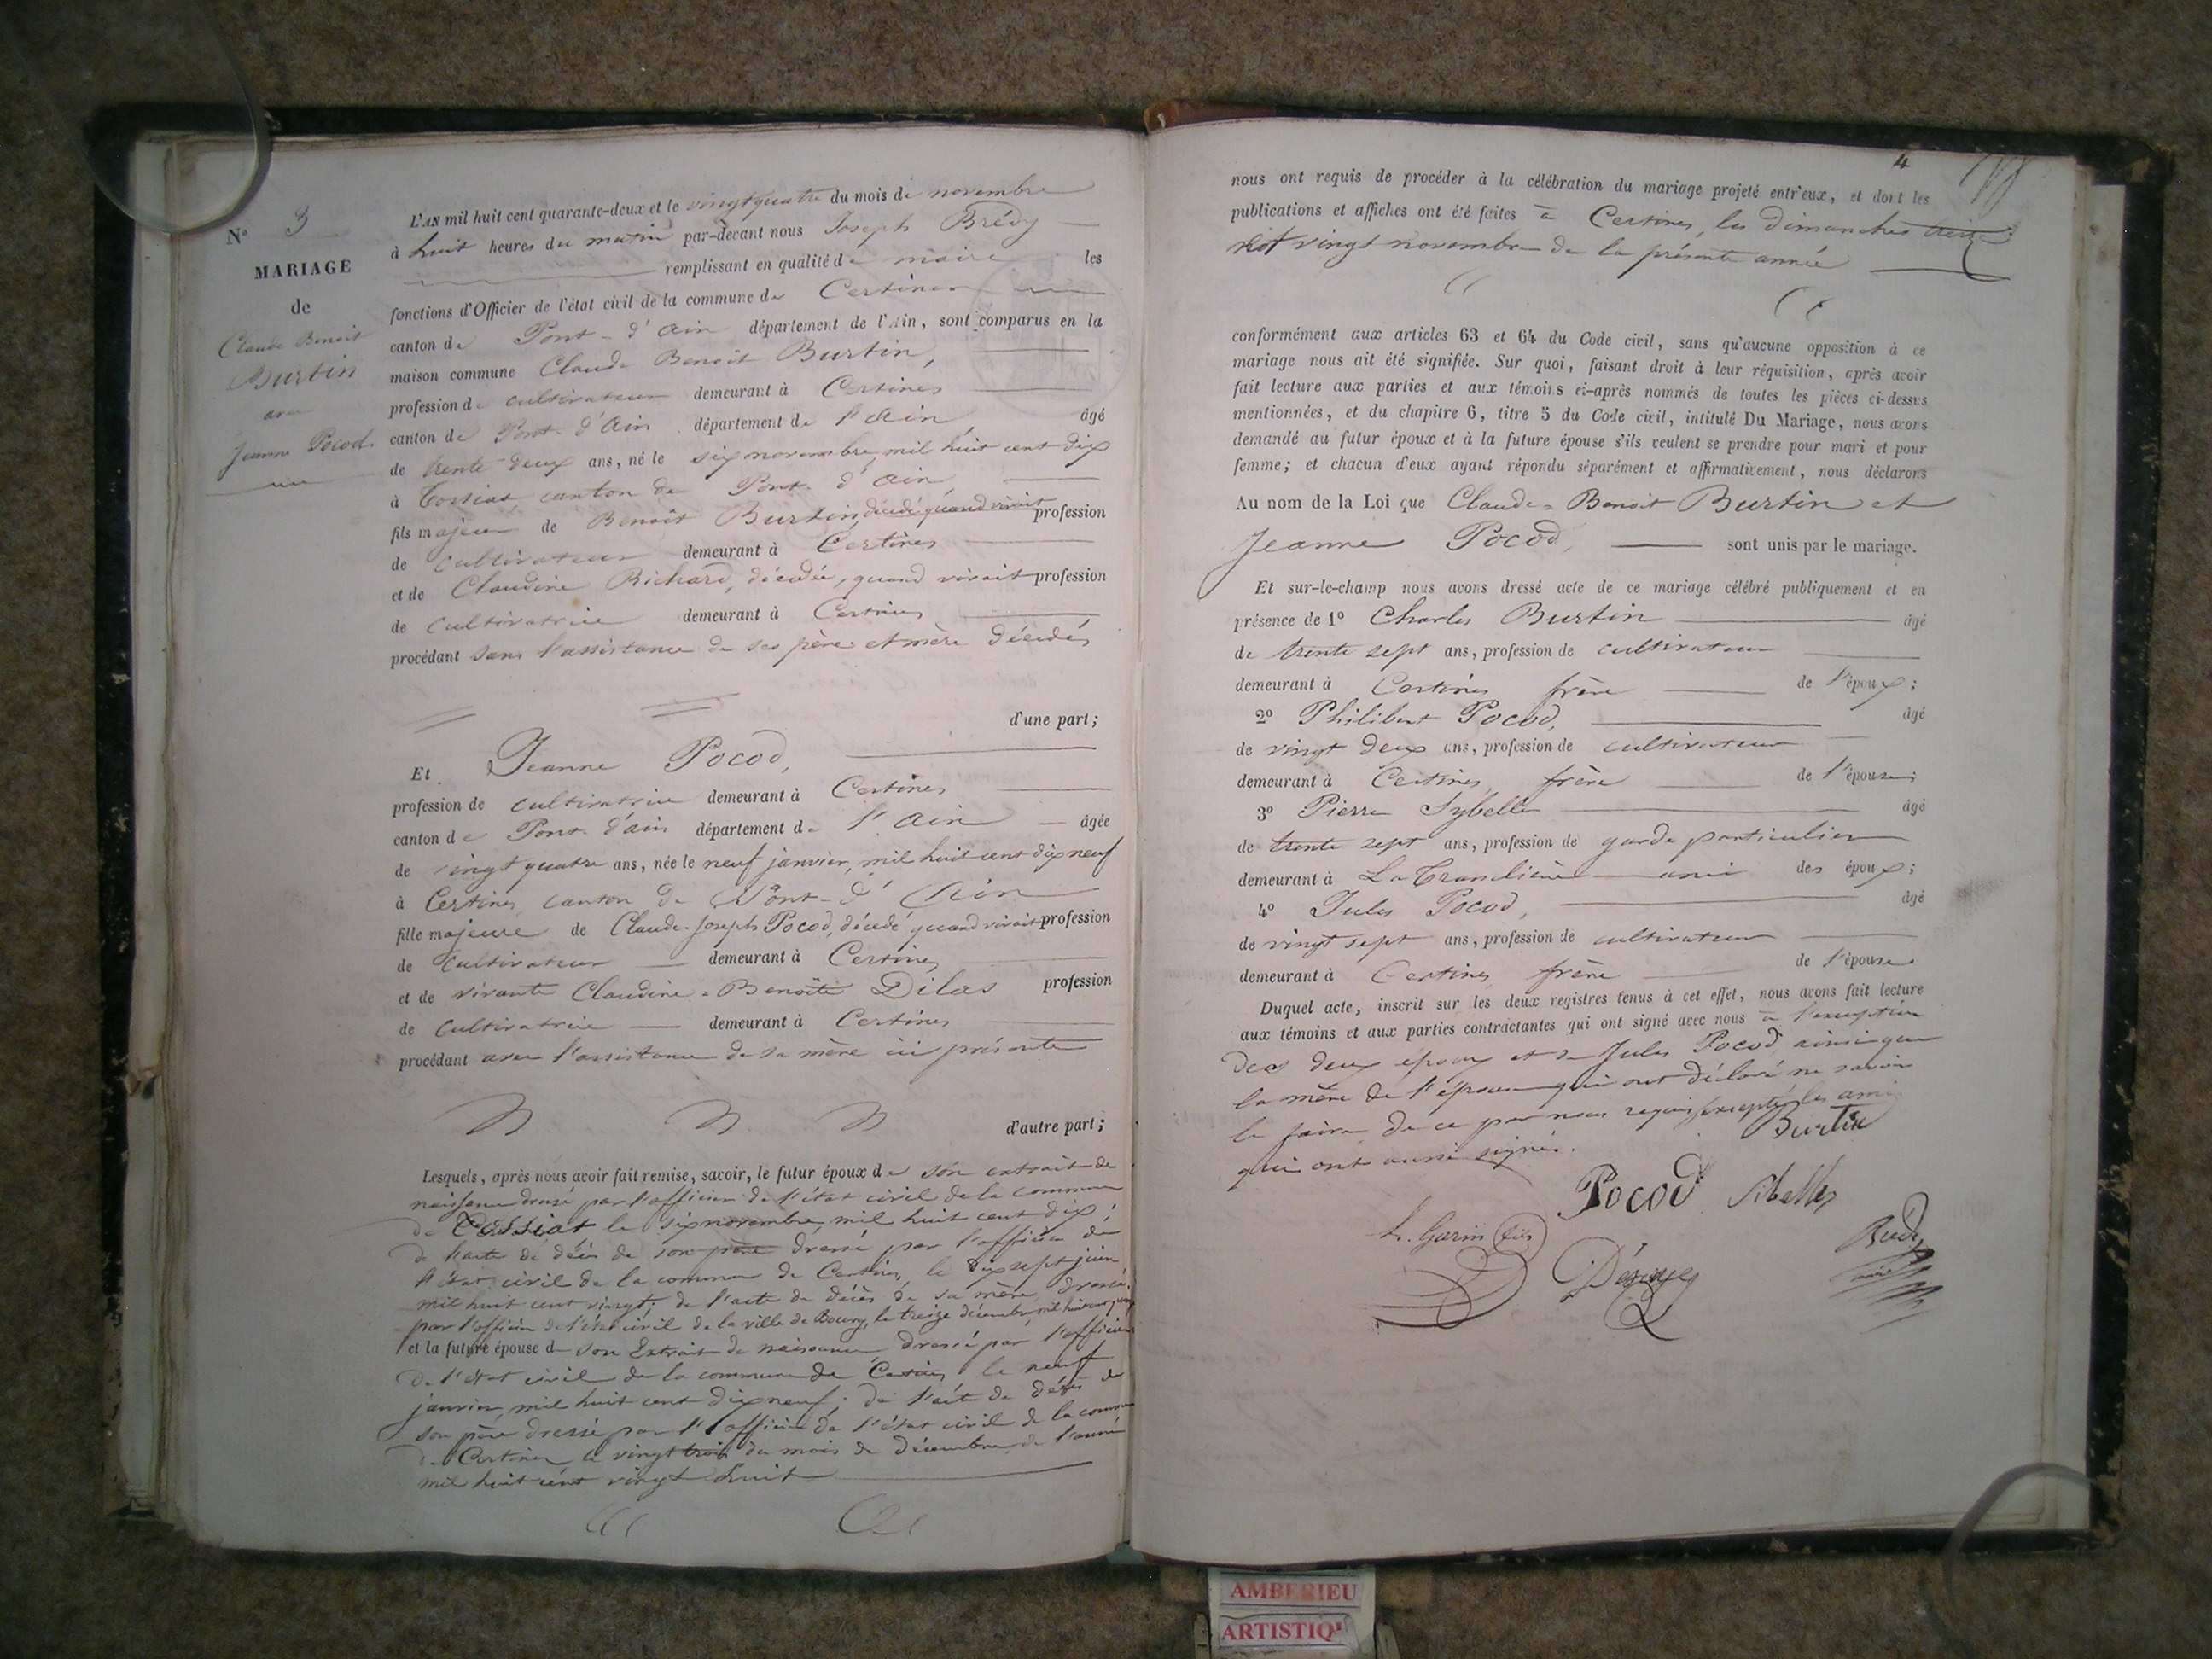 N° 3
MARIAGE
de
Claude Benoit
Burtin
avec
Jeanne Pocod
L'AN mil huit cent quarante-deux et le vingt quatre du mois de novembre
à huit heures du matin par-devant nous Joseph Brédy
remplissant en qualité de maire les
fonctions d'Officier de l'état civil de la commune de Certines
canton de Pont-d'Ain département de l'Ain, sont comparus en la
maison commune Claude Benoit Burtin,
profession de cultivateur demeurant à Certines
canton de Pont-d'Ain département de l'Ain âgé
de trente deux ans, né le six novembre mil huit cent dix
à Tossiat canton de Pont-d'Ain
fils majeur de Benoît Burtin, décédé quand vivait profession
de cultivateur demeurant à Certines
et de Claudine Richard, décédée, quand vivait profession
de cultivatrice demeurant à Certines
procédant sans l'assistance de ses père et mère décédés
d'une part;
Et Jeanne Pocod,
profession de cultivatrice demeurant à Certines
canton de Pont-d'ain département de l'Ain âgée
de vingt quatre ans, née le neuf janvier, mil huit cent dix neuf
à Certines canton de Pont-d'Ain
fille majeure de Claude-Joseph Pocod, décédé quand vivait profession
de cultivateur demeurant à Certines
et de vivante Claudine-Benoîte Dilas profession
de cultivatrice demeurant à Certines
procédant avec l'assistance de sa mère ici présente
d'autre part;
Lesquels, après nous avoir fait remise, savoir, le futur époux de son extrait de
naissance dressé par l'officier de l'état civil de la commune
de Tossiat le six novembre, mil huit cent dix;
de l'acte de décès de son père dressé par l'officier de
l'état civil de la commune de Certines, le dix sept juin
mil huit cent vingt; de l'acte de décès de sa mère, dressé
par l'officier de l'état civil de la ville de Bourg, le treize décembre mil huit cent
et la future épouse de son Extrait de naissance dressé par l'officier
de l'état civil de la commune de Certines le neuf
janvier, mil huit cent dix neuf; de l'acte de décès de
son père dressé par l'officier de l'état civil de la commune
de Certines le vingt trois du mois de décembre de l'année
mil huit cent vingt huit
4
nous ont requis de procéder à la célébration du mariage projeté entr'eux, et dont les
publications et affiches ont été faites à Certines, les dimanches treize
et vingt novembre de la présente année
conformément aux articles 63 et 64 du Code civil, sans qu'aucune opposition à ce
mariage nous ait été signifiée. Sur quoi, faisant droit à leur réquisition, après avoir
fait lecture aux parties et aux témoins ci-après nommés de toutes les pièces ci-dessus
mentionnées, et du chapitre 6, titre 5 du Code civil, intitulé Du Mariage, nous avons
demandé au futur époux et à la future épouse s'ils veulent se prendre pour mari et pour
femme; et chacun d'eux ayant répondu séparément et affirmativement, nous déclarons
Au nom de la Loi que Claude-Benoit Burtin et
Jeanne Pocod, sont unis par le mariage.
Et sur-le-champ nous avons dressé acte de ce mariage célébré publiquement et en
présence de 1° Charles Burtin âgé
de trente sept ans, profession de cultivateur
demeurant à Certines frère de l'époux;
2° Philibert Pocod, âgé
de vingt deux ans, profession de cultivateur
demeurant à Certines frère de l'épouse;
3° Pierre Sybelle âgé
de trente sept ans, profession de garde particulier
demeurant à La Tranclière ami des époux;
4° Jules Pocod, âgé
de vingt sept ans, profession de cultivateur
demeurant à Certines frère de l'épouse.
Duquel acte, inscrit sur les deux registres tenus à cet effet, nous avons fait lecture
aux témoins et aux parties contractantes qui ont signé avec nous à l'exception
des deux époux et de Jules Pocod, ainsi que
la mère de l'épouse qui ont déclaré ne savoir
le faire de ce par nous requis, excepté les amis
qui ont aussi signés.
Burtin
Pocod Sibelle
Garin fils
Brédy
maire
AMBERIEU
ARTISTIQ